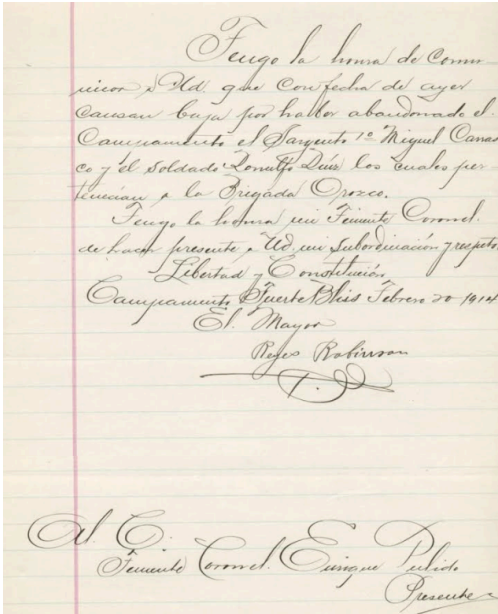 Tengo la honra de comu-
nicar a Ud. que con fecha de ayer
causan baja por haber abandonado el
Campamento el Sargento 1º Miguel Carras
co y el soldado Ronulfo Díaz los cuales per-
tenecían a la Brigada Orozco.
Tengo la honra mi Teniente Coronel.
de hacer presente a Ud. mi subordinación y respeto.
Libertad y Constitución
Campamento Fuerte Bliss Febrero 20 1914
El. Mayor
Reyes Robinson
Al C.
Teniente Coronel. Enrique Pulido
Presente